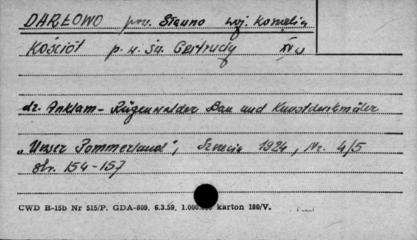 DARŁOWO pow. Sławno woj. Koszalin
Kościół p. w. św. Gertrudy XV w
dz. Anklam - Rügenwalder Bau und Kunstdenkmäler
„Unser Pommerland", Szczecin 1924, Nr. 4/5
str. 154-157
CWD B-15b Nr 515/P. GDA-809. 6.3.59. 1.000.000 karton 180/V.